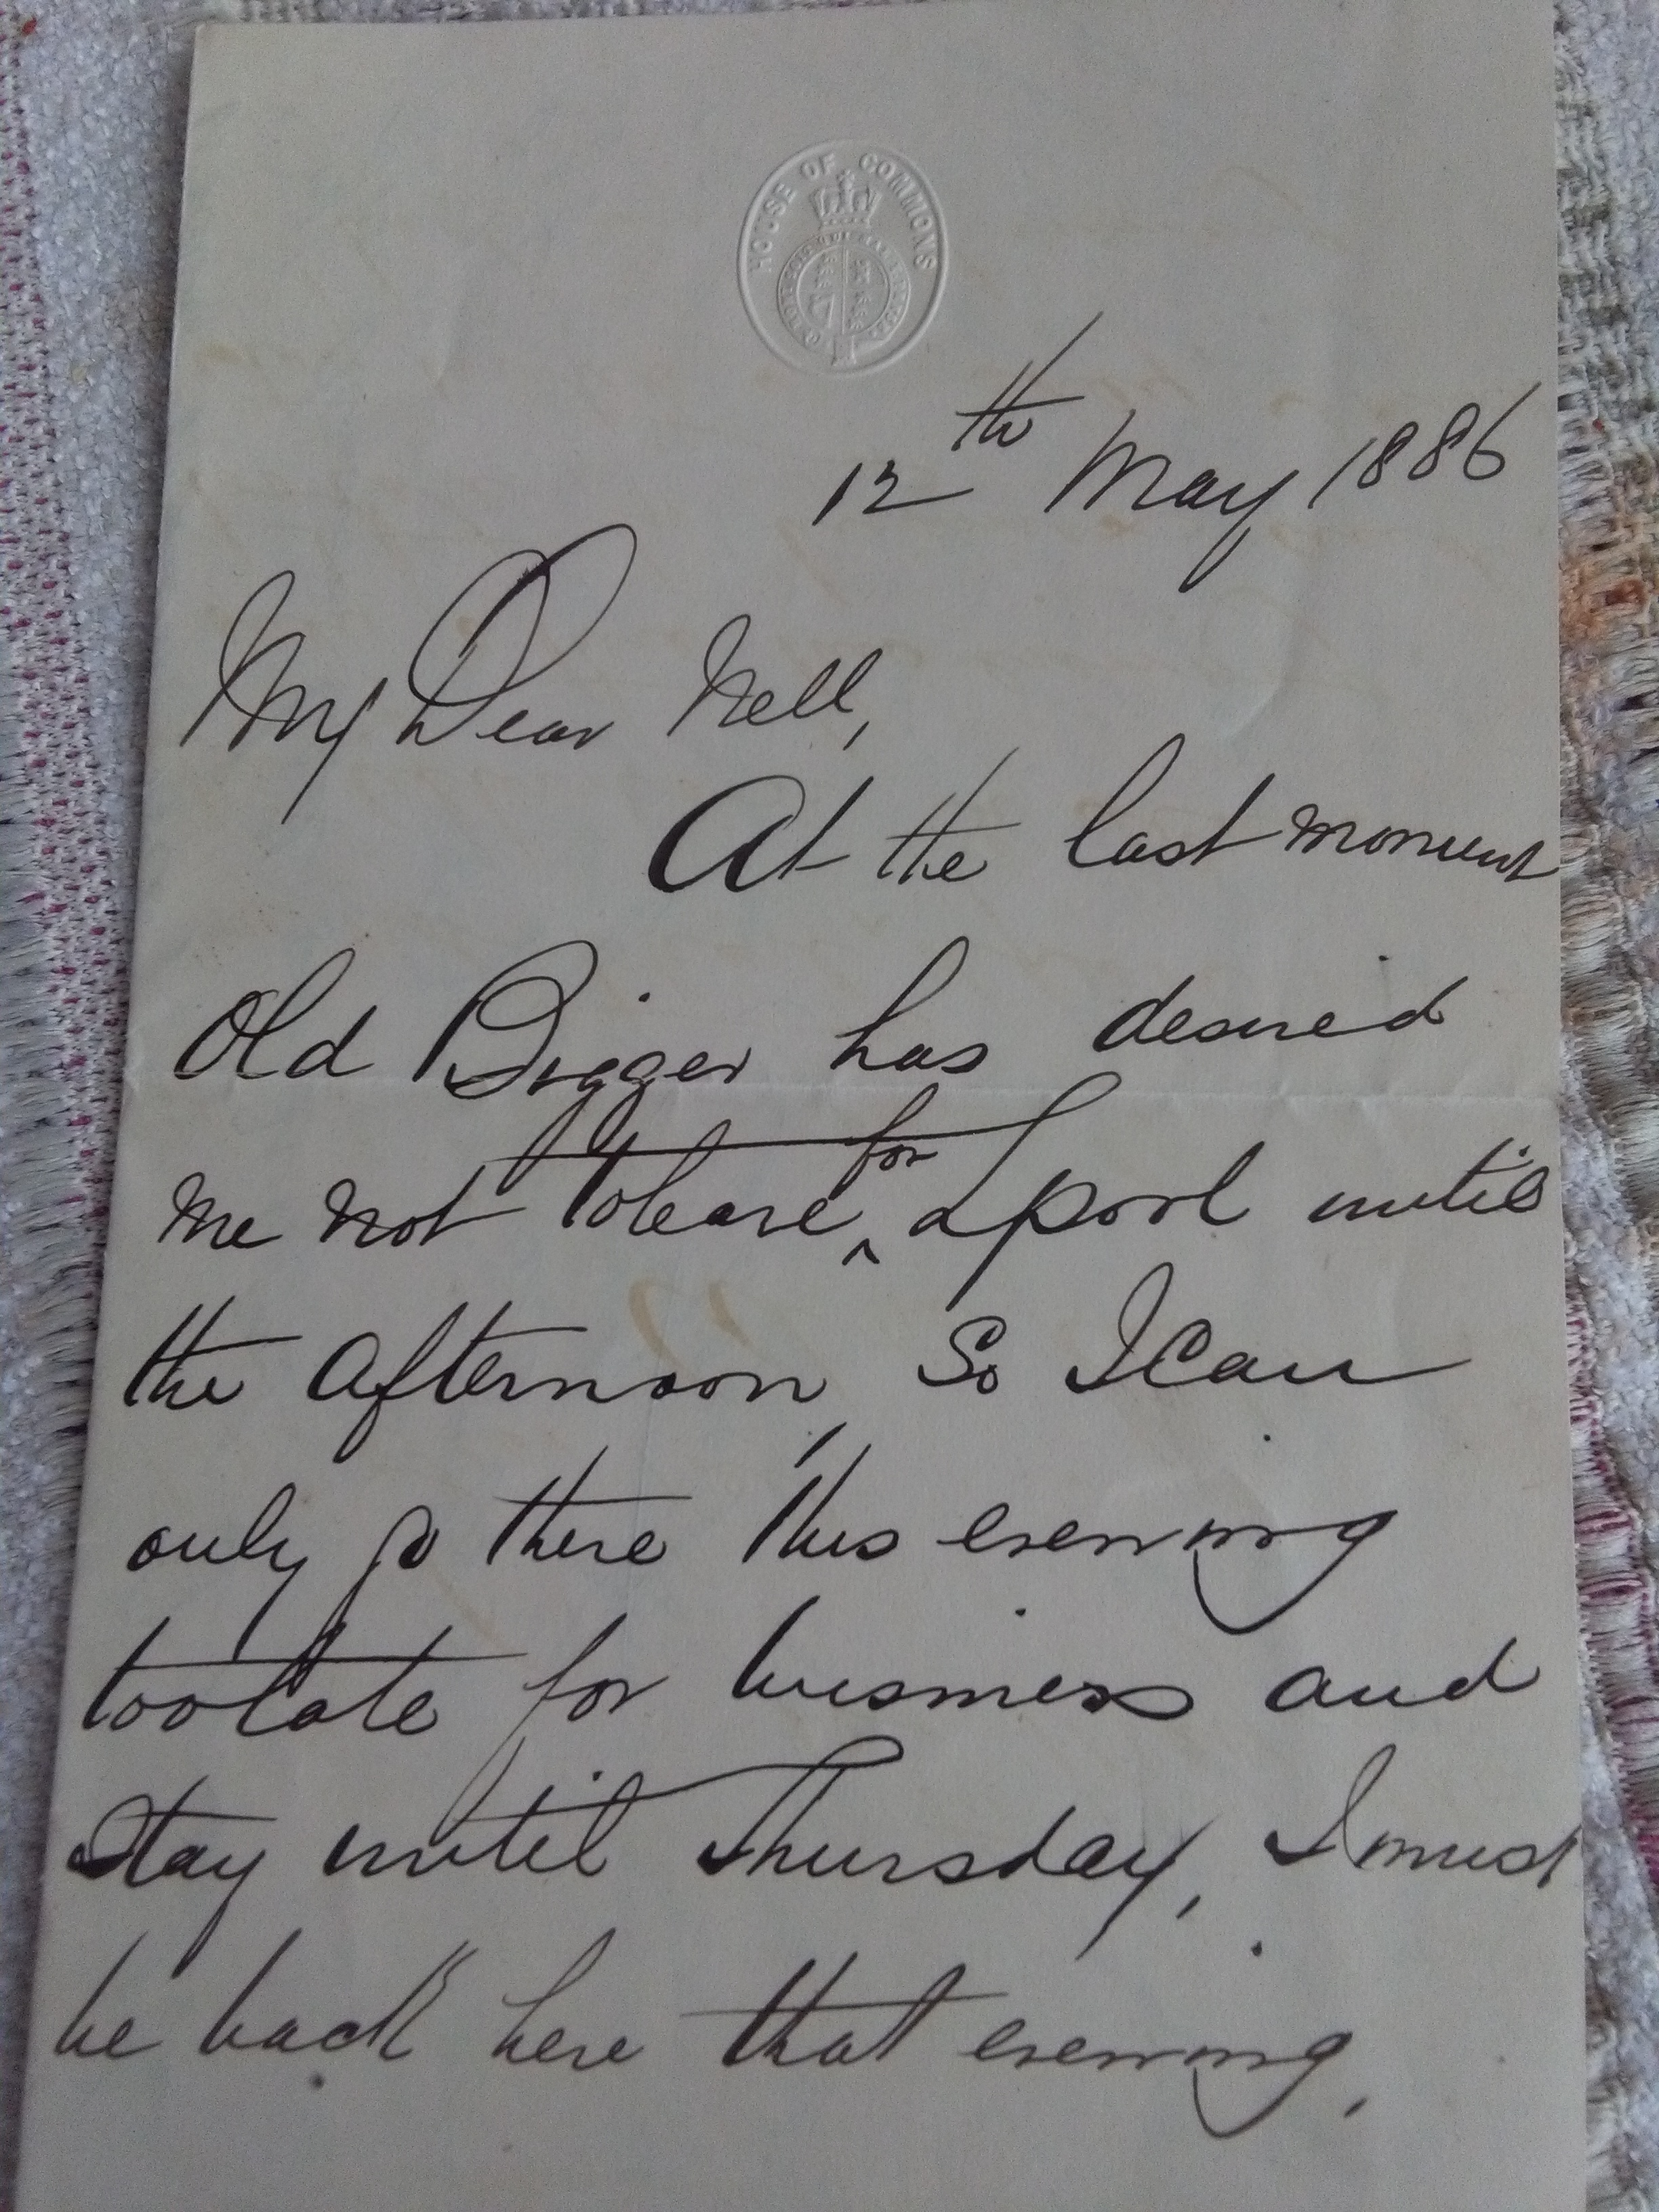 HOUSE OF COMMONS
12th May 1886
My Dear Nell,
At the last moment
Old Bigger has desired
me not to leave for Lpool until
the afternoon, So I Can
only go there this evening
too late for business and
Stay until Thursday, I must
be back here that evening.